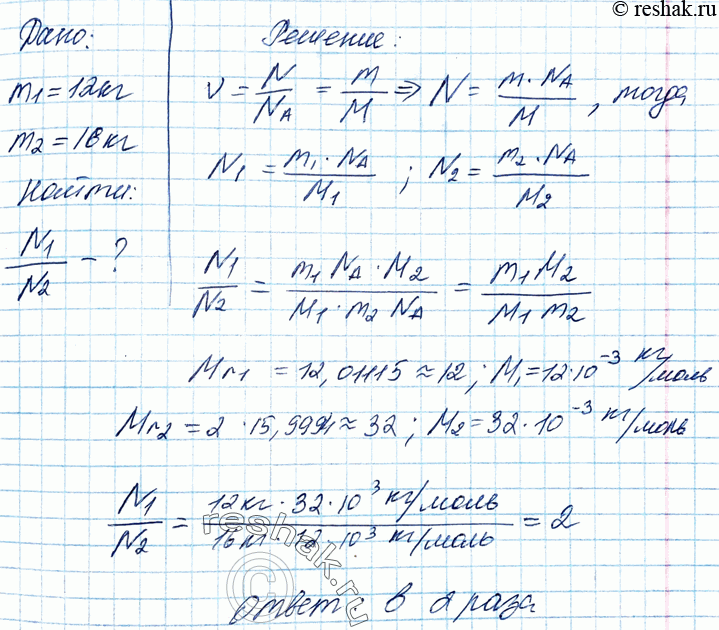 © reshak.ru
Дано:
m1 = 12 кг
m2 = 16 кг
Найти:
N1/N2 - ?
Решение:
ν = N/NA = m/M ⇒ N = m · NA / M , тогда
N1 = m1 · NA / M1 ; N2 = m2 · NA / M2
N1/N2 = m1 NA · M2 / M1 · m2 NA = m1 M2 / M1 m2
Mr1 = 12,01115 ≈ 12; M1 = 12·10⁻³ кг/моль
Mr2 = 2 · 15,9994 ≈ 32; M2 = 32 · 10⁻³ кг/моль
N1/N2 = 12кг · 32 · 10³ кг/моль / 16кг · 12 · 10³ кг/моль = 2
reshak.ru
©
Ответ в 2 раза